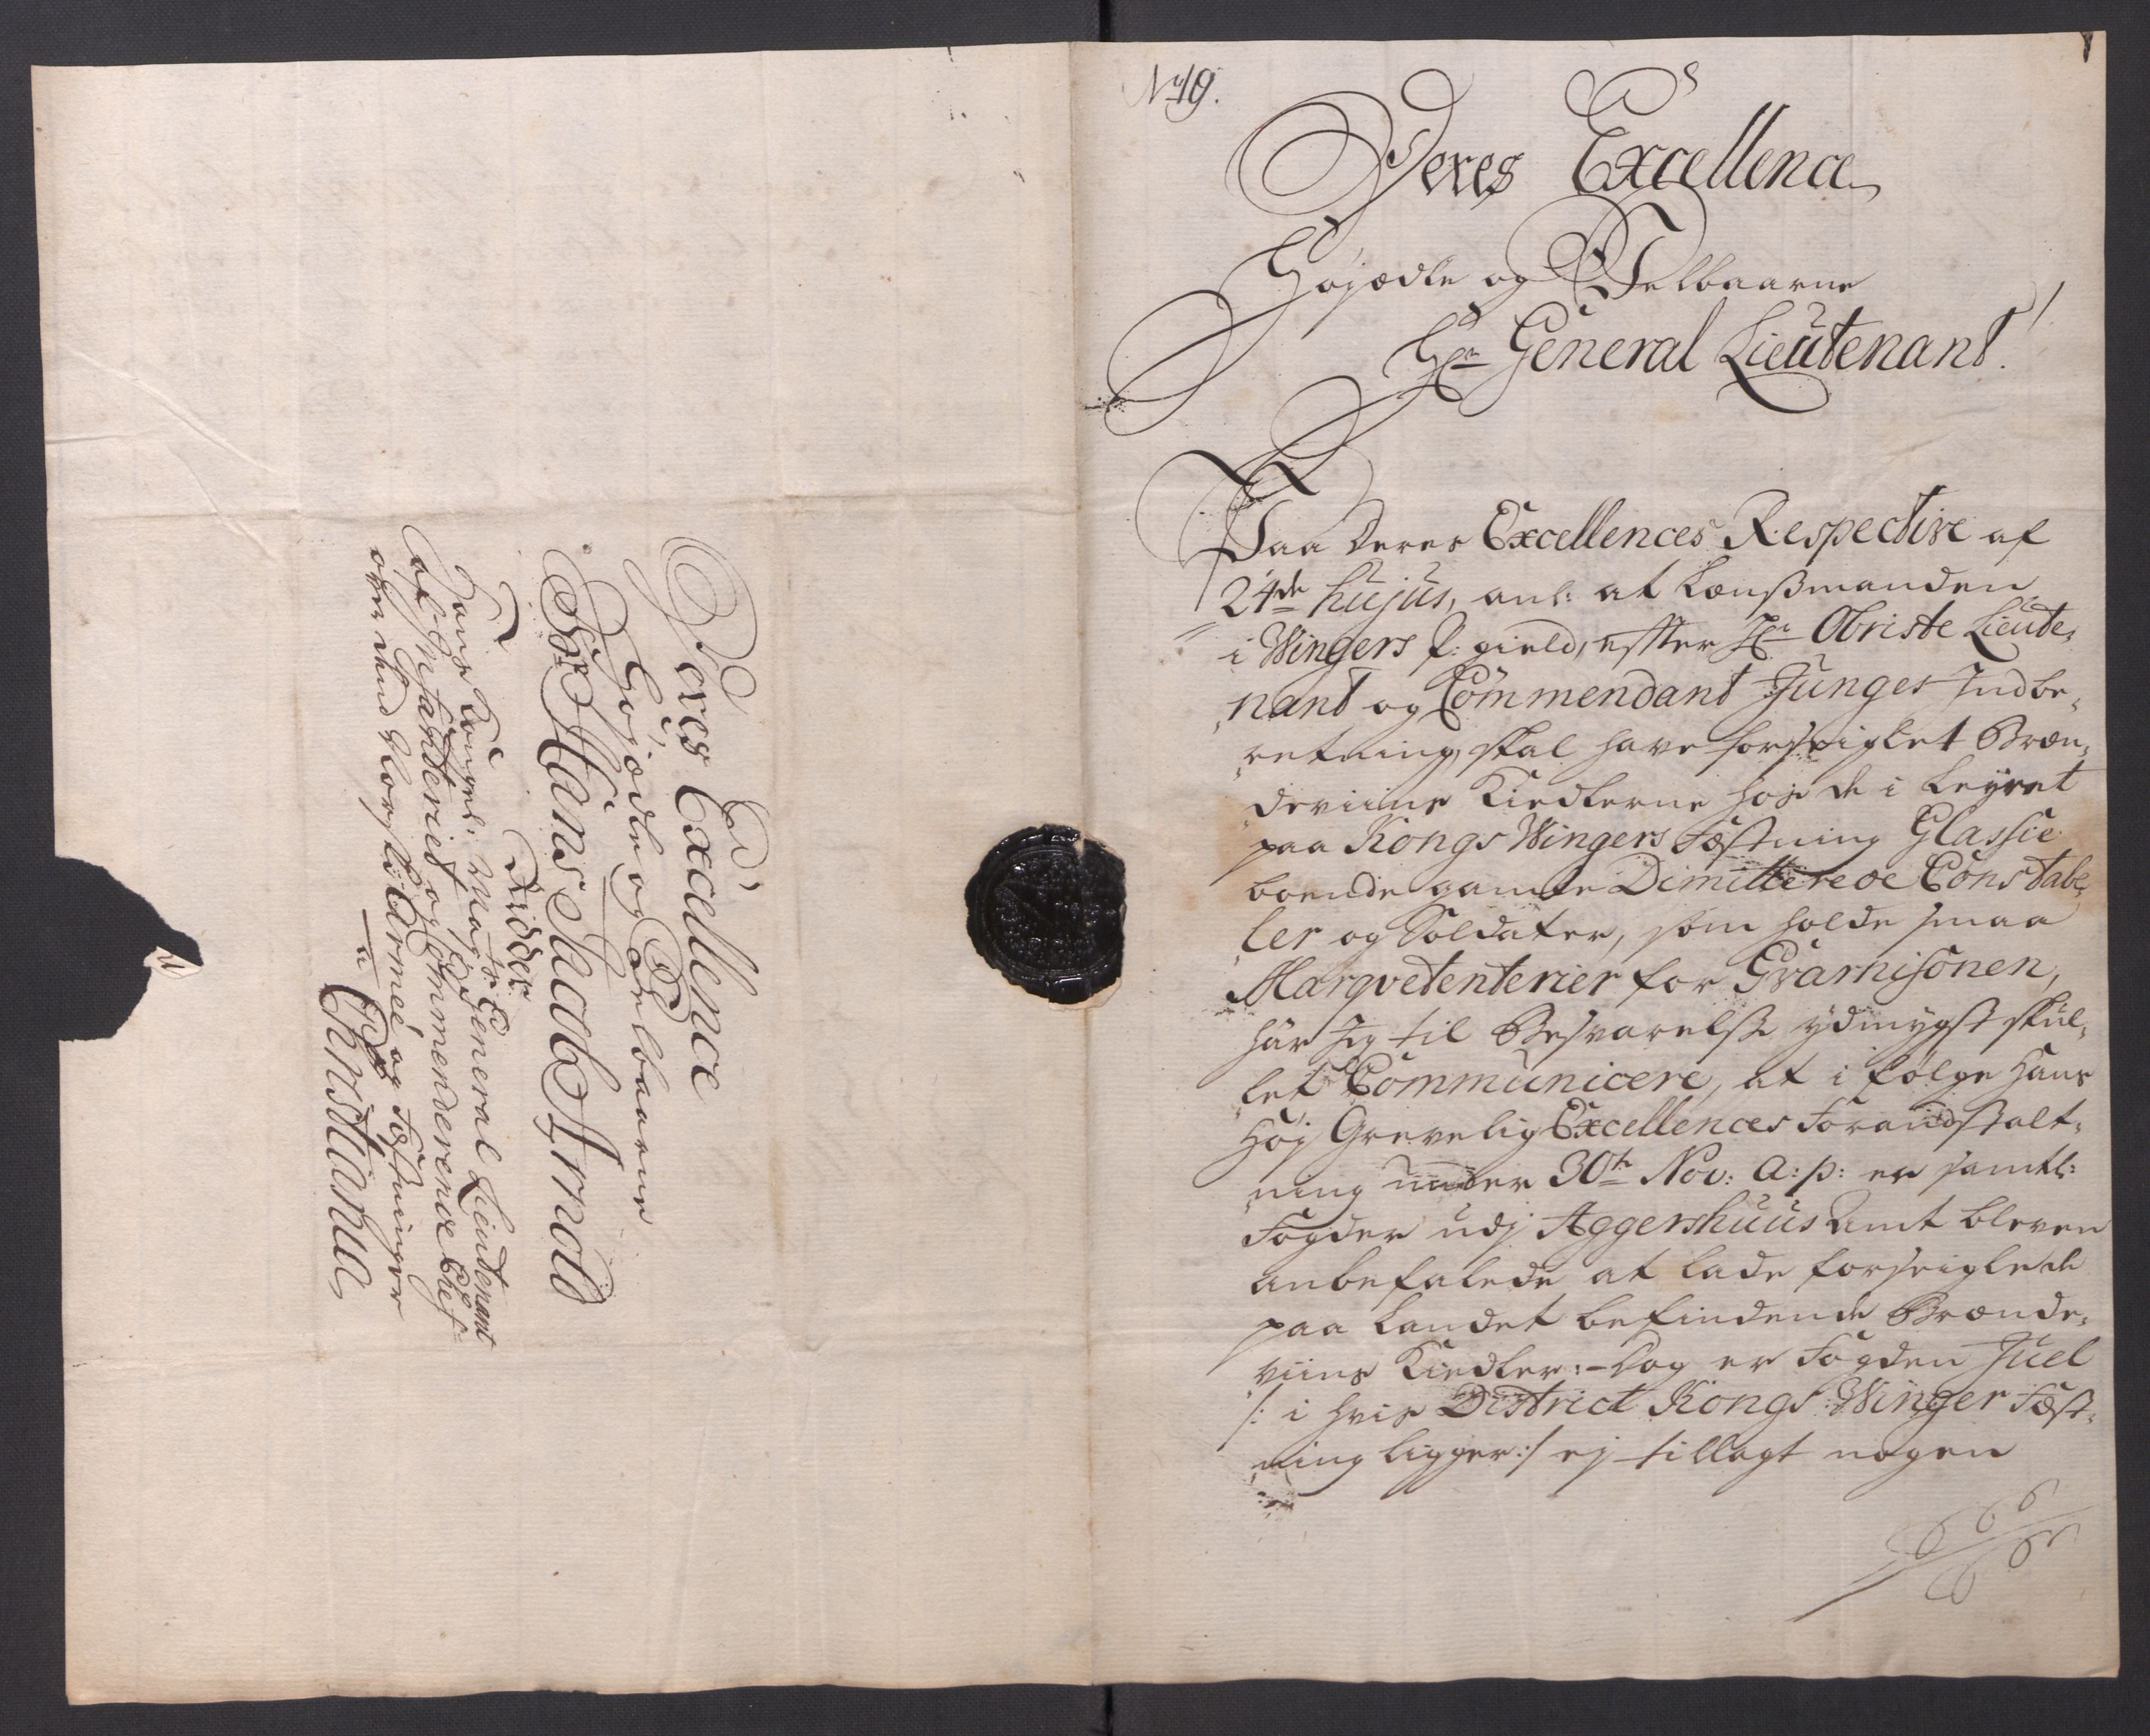 No 19.
Deres Excellence
Højædle og Velbaarne
Hr General Lieutenant!
Paa Deres Excellences Respective af
24de hujus, anl: at Lensmanden
i Wingers P: gield, effter Hr Obriste Lieute-
nant og Commendant Junges Indbe-
retning, skal have forseiglet Bræn-
deviins Kiedlerne hos de i Leyret
paa Kongs Wingers Fæstning Glassie
boende gamle Dimitterede Constabe-
ler og Soldater, som holde smaa
Marqvetenterier for Gvarnisonen,
har Jeg til Besvarelse ydmygst skul-
let Communicere, at i følge Hans
Høj Grevelig Excellences Foranstalt-
ning under 30te Nov: a: p: er samtl:
Fogder udj Aggershuus Amt bleven
anbefalede at lade forseigle de
paa Landet befindende Brænde-
viins Kiedler: - Dog er Fogden Juel
/: i hvis District Kongs Winger Fæst-
ning ligger :/ ej tillagt nogen
Deres Excellence
Højædle og Velbaarne
Hr Hans Jacob Arnold
Ridder
Hans Kongel: Mayts General Lieutenant
af Infanteriet og Commanderende Chef
over den Norske Armeé og Fæstninger
a Christiania